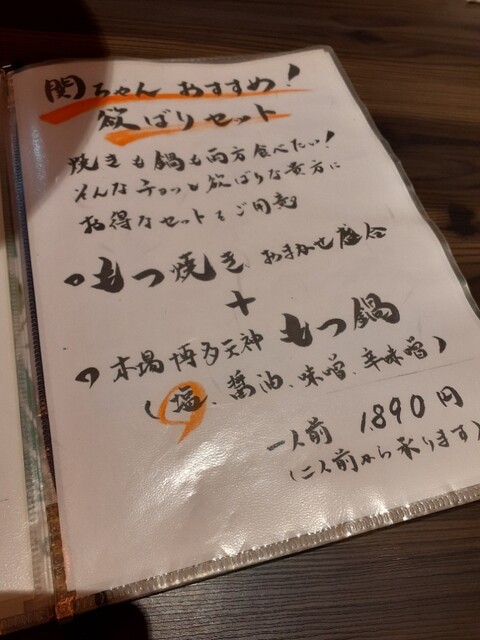 関ちゃんおすすめ!
欲ばりセット
焼きも鍋も両方食べたい!
そんなチョッと欲ばりな貴方に
お得なセットをご用意
もつ焼き おまかせ盛合
+
本場博多天神 もつ鍋
(塩、醤油、味噌、辛味噌)
一人前 1890円
(二人前から承ります)